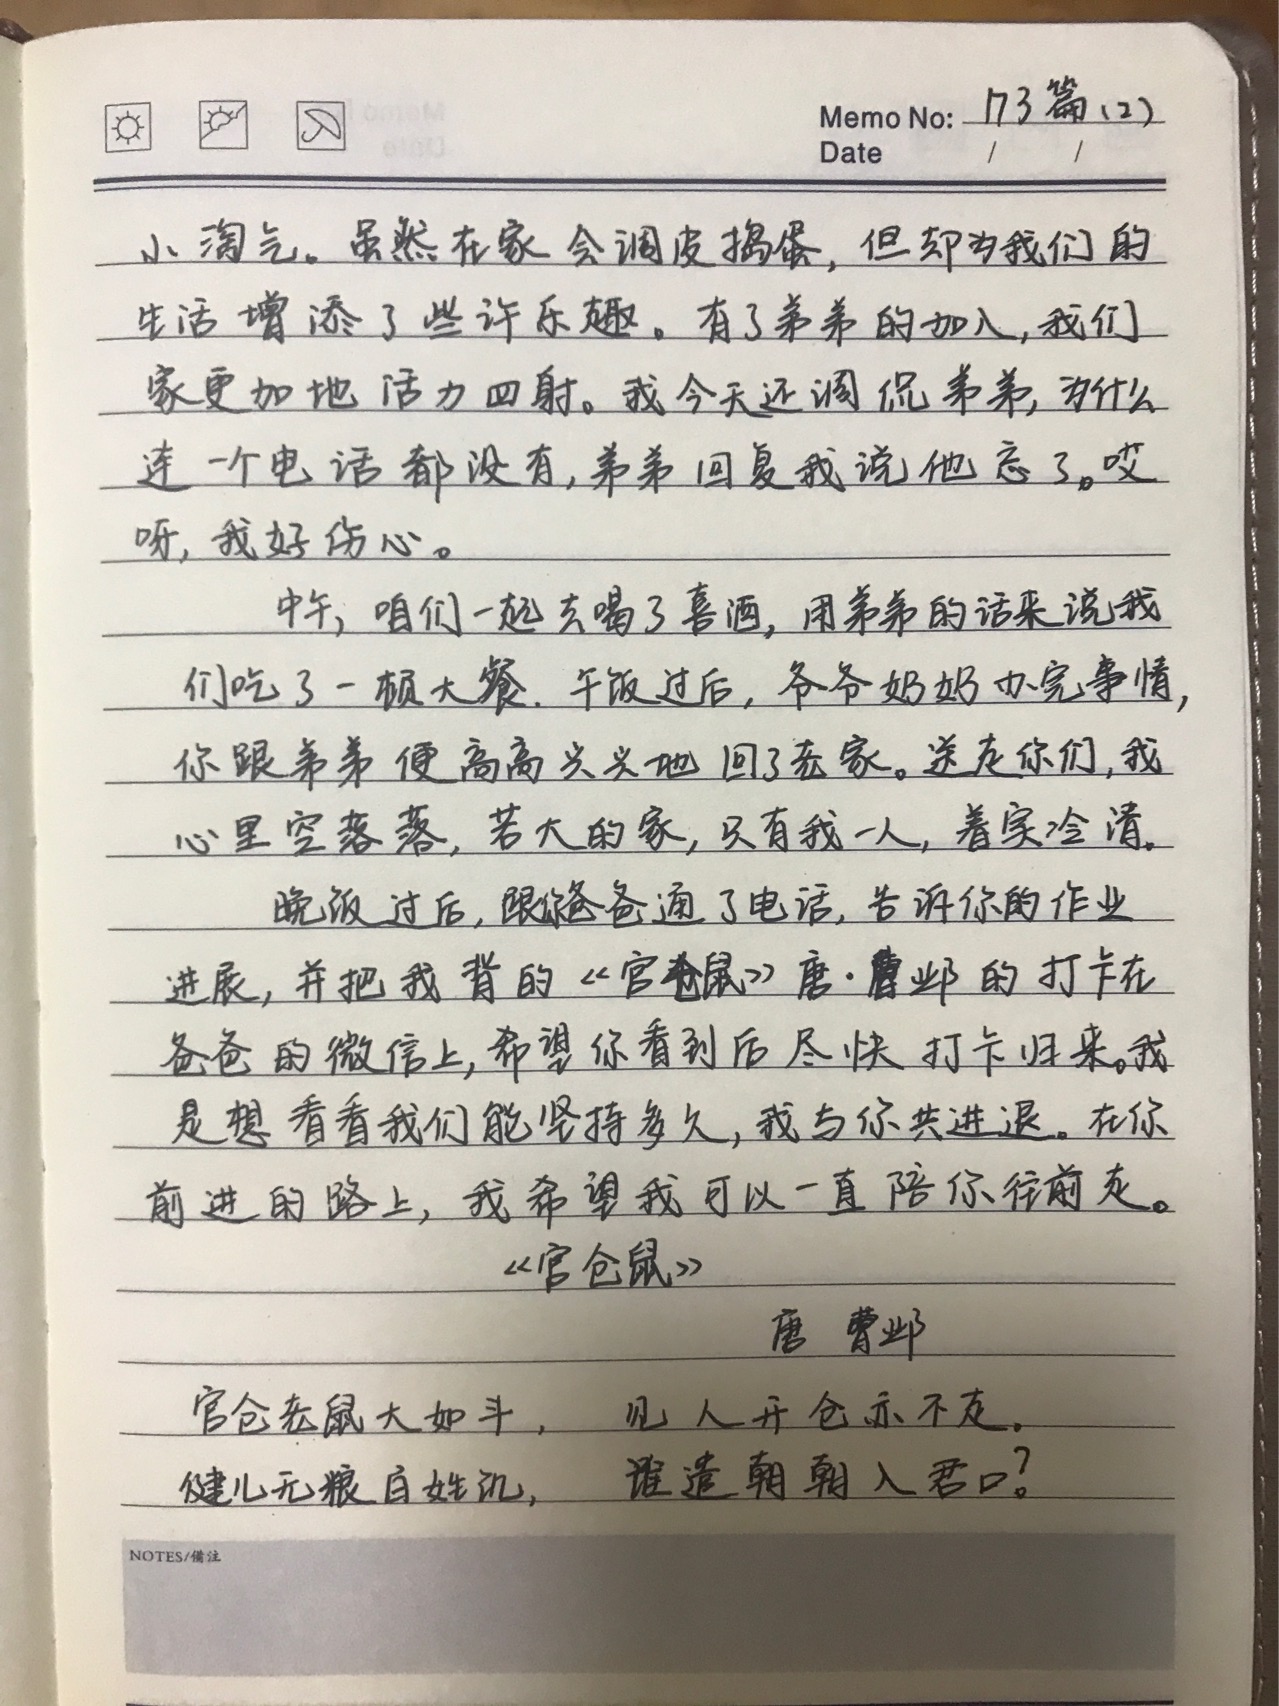 Memo No: 173篇(2)
Date / /
小淘气。虽然在家会调皮捣蛋，但却为我们的
生活增添了些许乐趣。有了弟弟的加入，我们
家更加地活力四射。我今天还调侃弟弟，为什么
连一个电话都没有，弟弟回复我说他忘了。哎
呀，我好伤心。
中午，咱们一起去喝了喜酒，用弟弟的话来说我
们吃了一顿大餐．午饭过后，爷爷奶奶办完事情，
你跟弟弟便高高兴兴地回了老家。送走你们，我
心里空落落，若大的家，只有我一人，着实冷清。
晚饭过后，跟你爸爸通了电话，告诉你的作业
进展，并把我背的《官仓鼠》唐·曹邺的打卡在
爸爸的微信上，希望你看到后尽快打卡归来。我
是想看看我们能坚持多久，我与你共进退。在你
前进的路上，我希望我可以一直陪你往前走。
《官仓鼠》
唐 曹邺
官仓老鼠大如斗， 见人开仓亦不走。
健儿无粮百姓饥， 谁遣朝朝入君口？
NOTES/備注